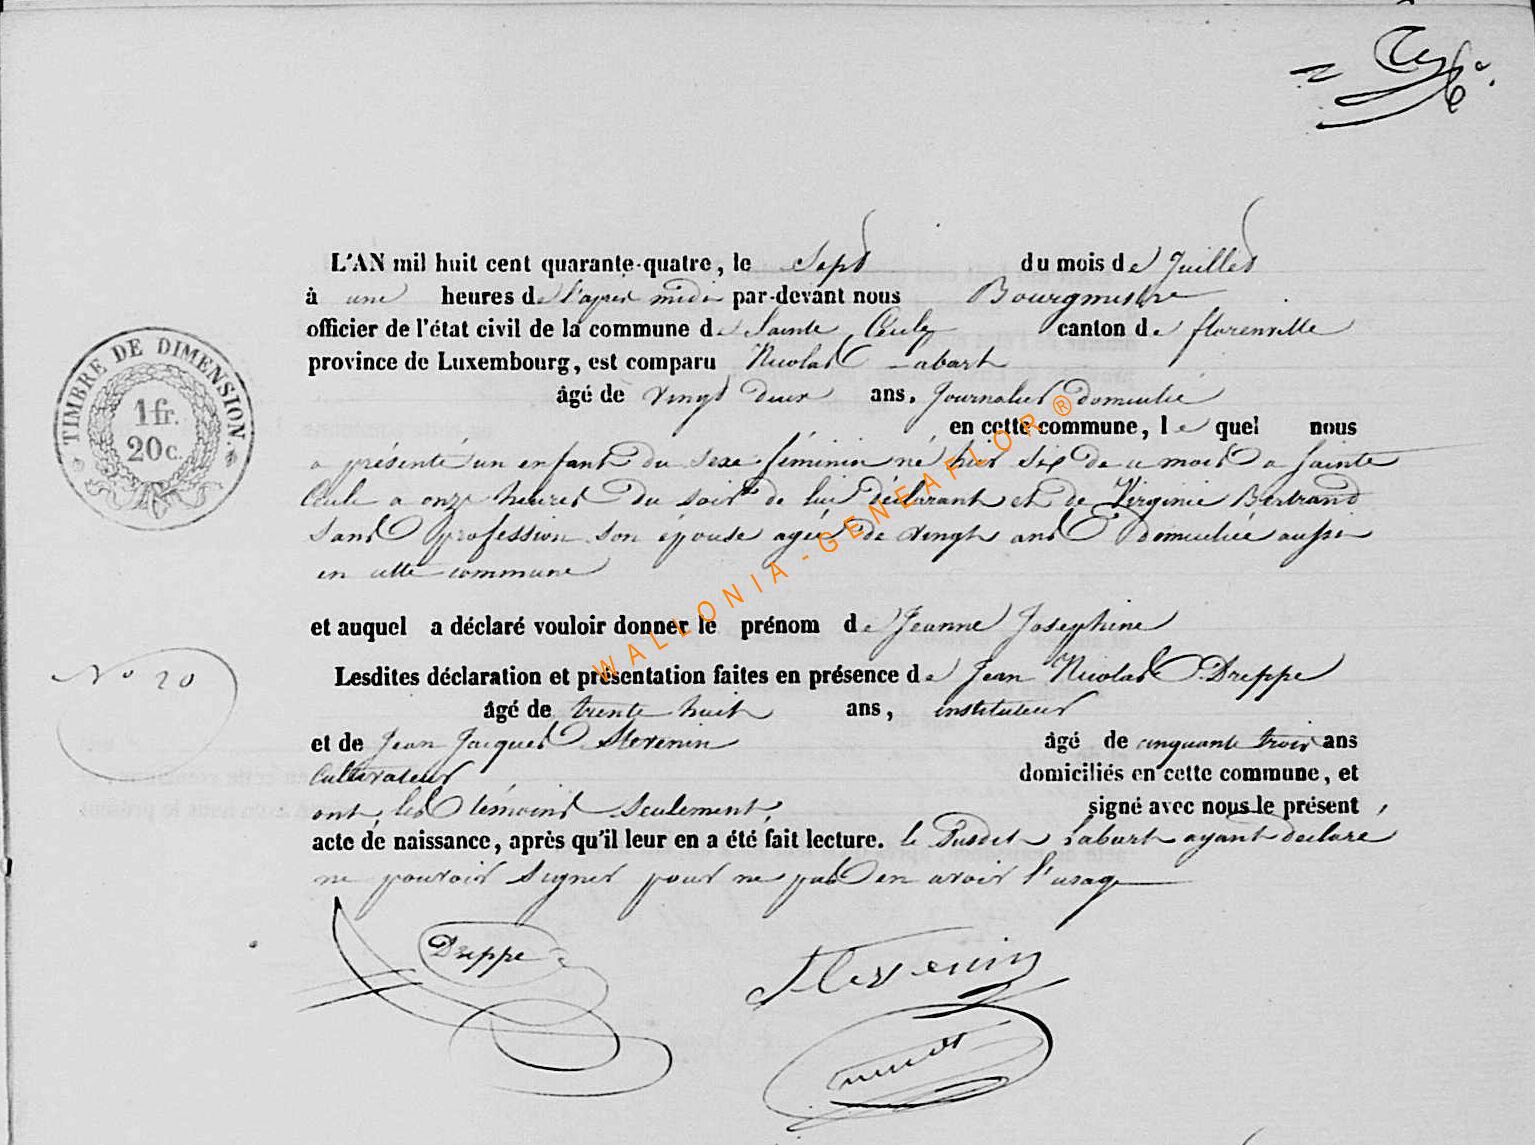 6e.
L'AN mil huit cent quarante-quatre, le Sept du mois de Juillet
à une heures de l'apres midi par-devant nous Bourgmestre
officier de l'état civil de la commune de Sainte Cecile canton de florenville
province de Luxembourg, est comparu Nicolas Labart
âgé de vingt deux ans, Journalier domicilié
en cette commune, lequel nous
a présenté un enfant du sexe féminin né hier six de ce mois a Sainte
Cecile a onze heures du soir de lui déclarant et de Virginie Bertrand
sans profession son épouse agée de vingt ans domiciliée aussi
en cette commune
et auquel a déclaré vouloir donner le prénom de Jeanne Josephine
Lesdites déclaration et présentation faites en présence de Jean Nicolas Dreppe
âgé de trente huit ans, instituteur
et de Jean Jacques Stevenin âgé de cinquante trois ans
Cultivateur domiciliés en cette commune, et
ont, les témoins seulement, signé avec nous le présent
acte de naissance, après qu'il leur en a été fait lecture. le susdit Labart ayant declaré
ne pouvoir signer pour ne pas en avoir l'usage
Dreppe
Stevenin
TIMBRE DE DIMENSION
1 fr.
20 c.
No 20
WALLONIA-GENEAFLOR®